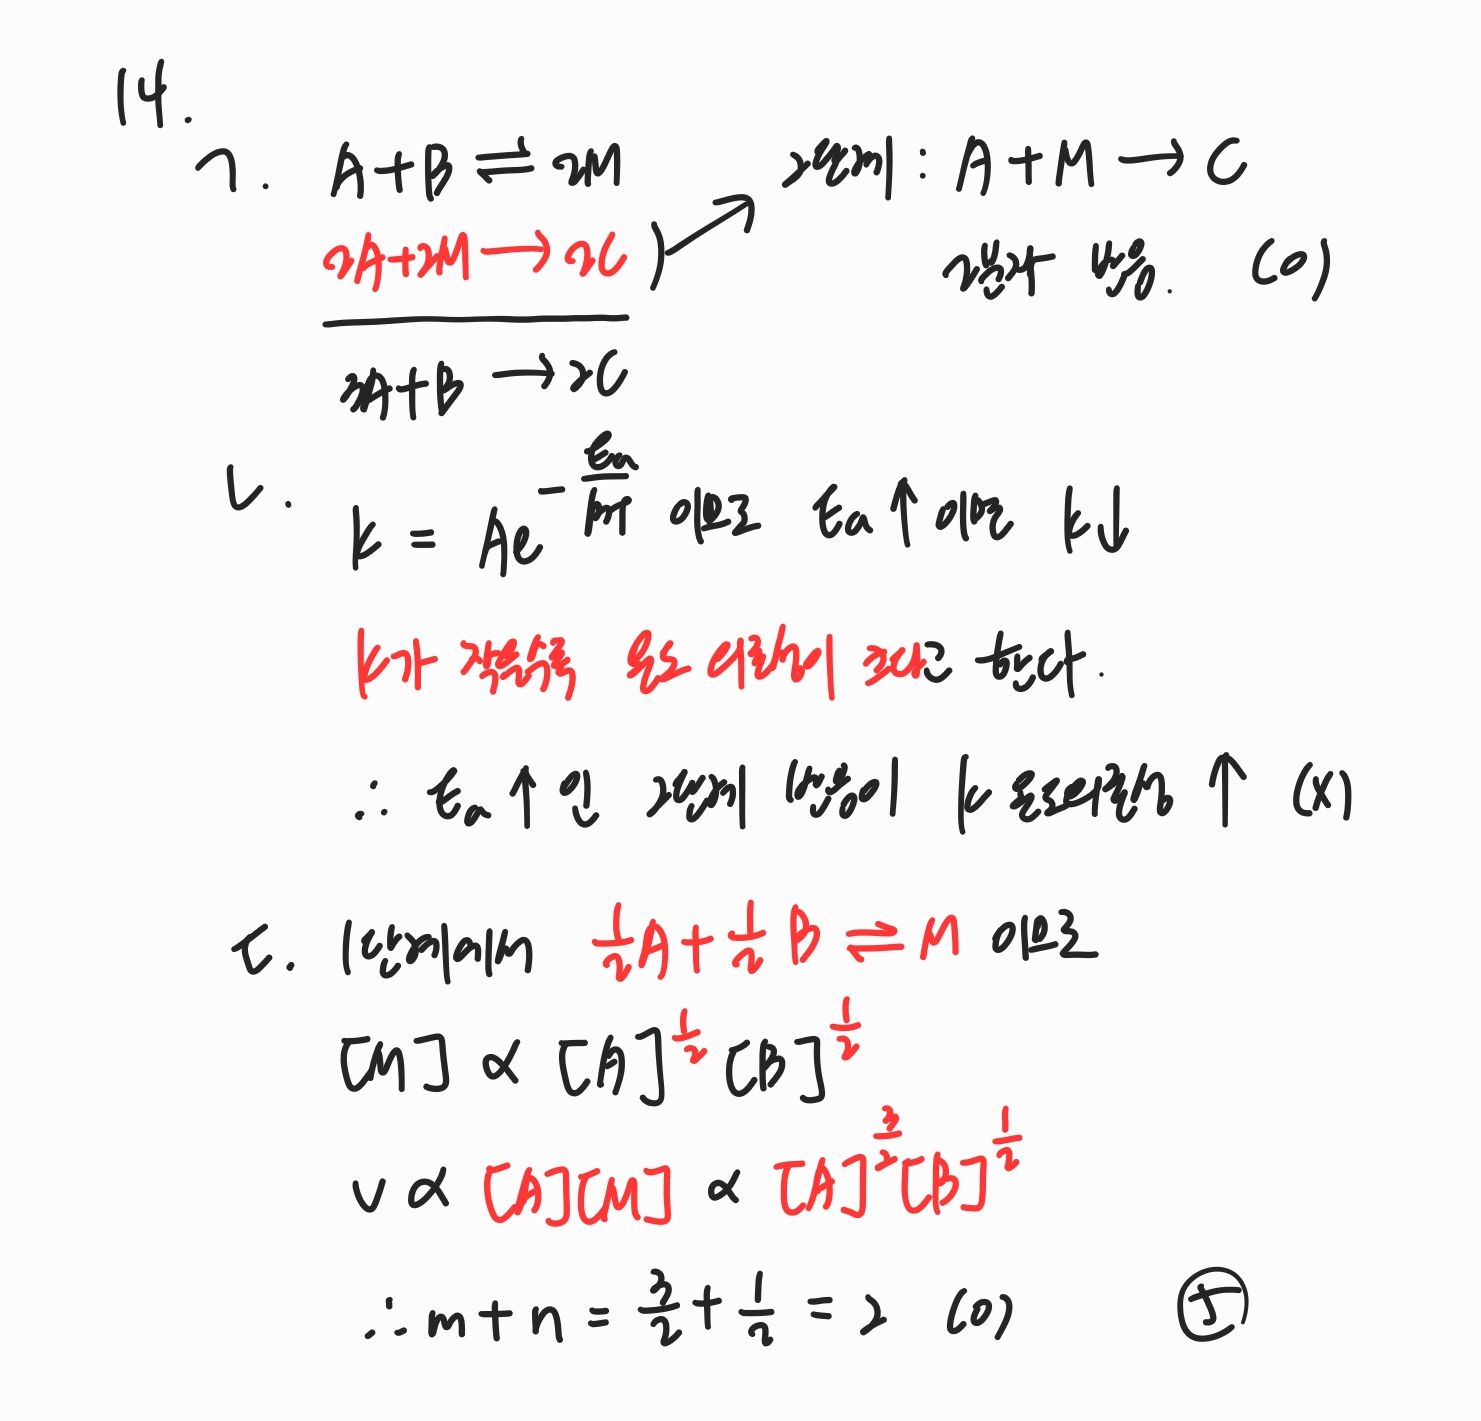 14.
ㄱ. A+B ⇌ 2M
2A+2M → 2C
3A+B → 2C
2단계 : A+M → C
2분자 반응. (O)
ㄴ. k = Ae^{-Ea/RT} 이므로 Ea↑이면 k↓
k가 작을수록 온도 의존성이 크다고 한다.
∴ Ea↑인 2단계 반응이 k 온도의존성 ↑ (X)
ㄷ. 1단계에서 1/2 A + 1/2 B ⇌ M 이므로
[M] ∝ [A]^{1/2} [B]^{1/2}
v ∝ [A][M] ∝ [A]^{3/2} [B]^{1/2}
∴ m+n = 3/2 + 1/2 = 2 (O)
⑤